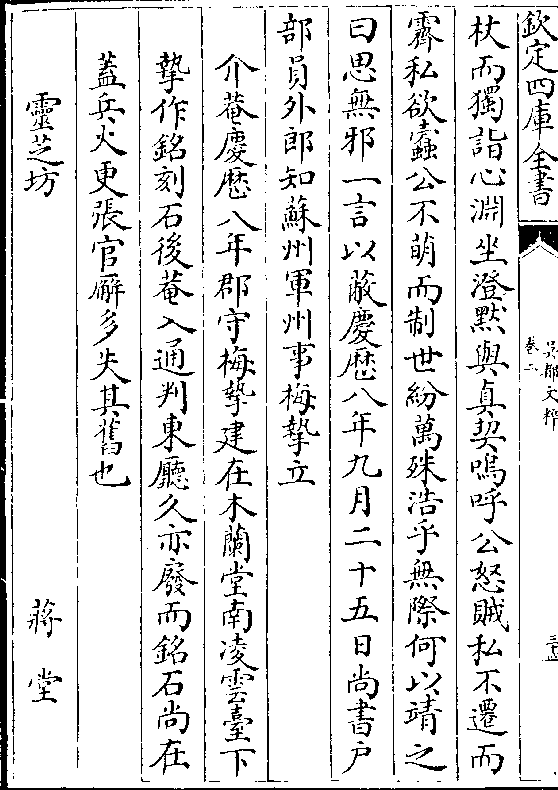 欽定四庫全書
吳都文粹
卷二
杖而獨詣心淵坐澄默與真契嗚呼公怒賊私不遷而
霽私欲蠧公不萌而制世紛萬殊浩乎無際何以靖之
曰思無邪一言以蔽慶歷八年九月二十五日尚書戸
部員外郎知蘇州軍州事梅摯立
介菴慶歷八年郡守梅摯建在木蘭堂南凌雲臺下
摯作銘刻石後菴入通判東廳久亦廢而銘石尚在
蓋兵火更張官廨多失其舊也
靈芝坊 蔣堂